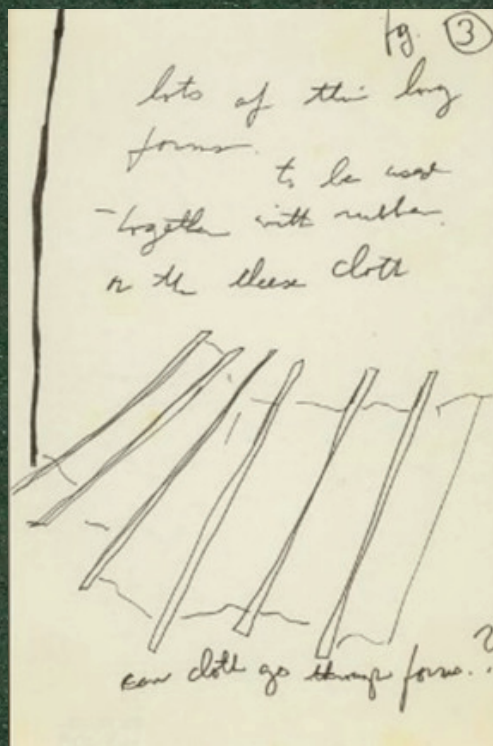 fg. 3
lots of thin long
forms.
to be used
- together with rubber
on the cheese cloth
can cloth go through forms.?